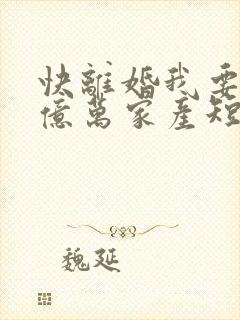 快離婚我要
億萬家產短
魏延